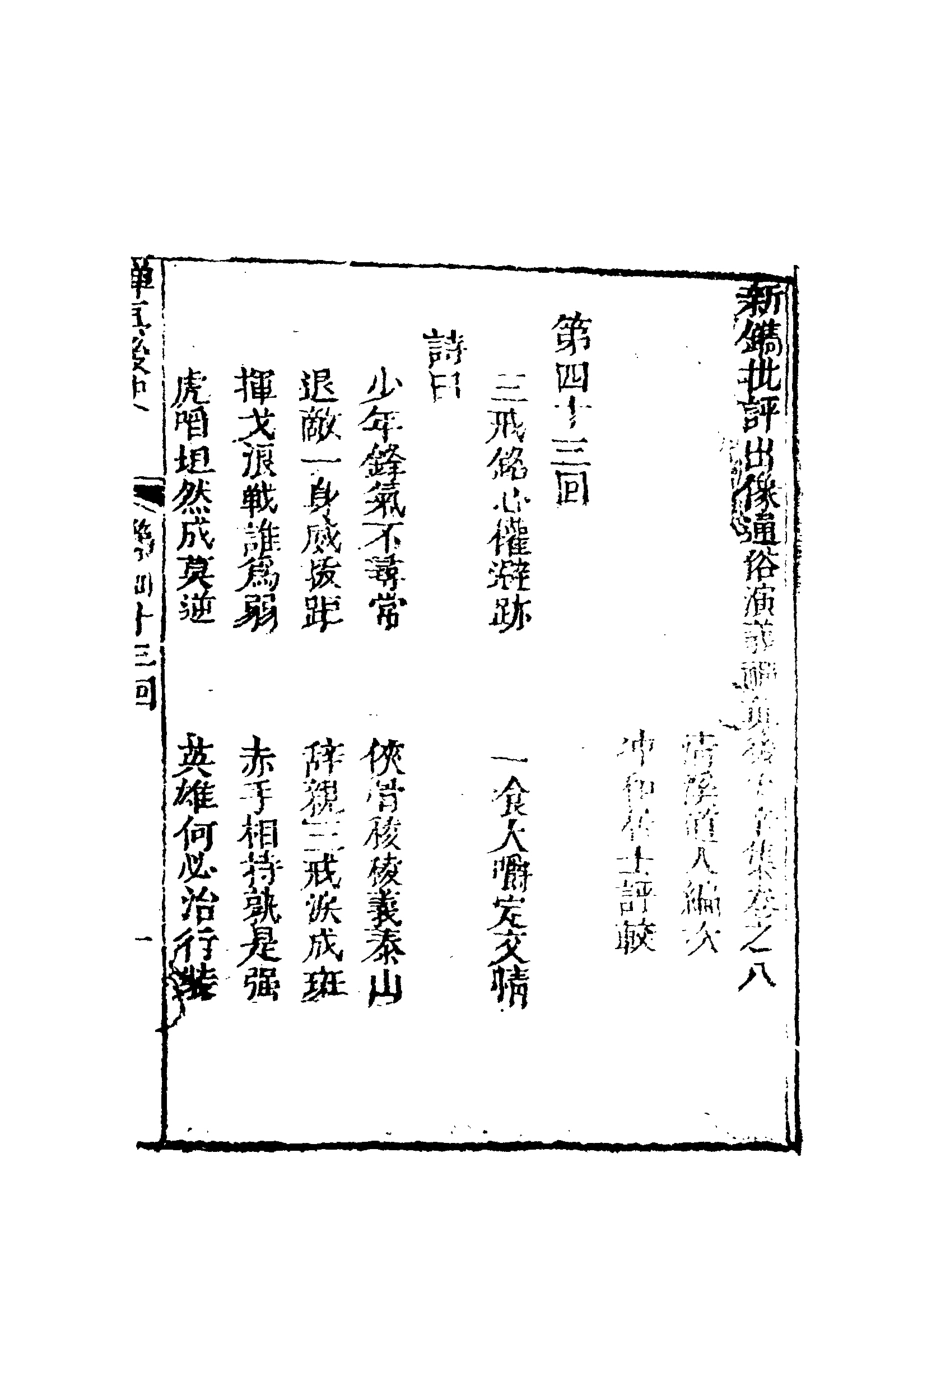 新鐫批評出像通俗演義禪真後史辛集卷之八
清溪道人編次
冲和居士評較
第四十三回
三戒銘心權避跡　一飡人嚼定交情
詩曰
少年鋒氣不尋常　俠骨稜稜義泰山
退敵一身威拔距　辞親三戒淚成斑
揮戈浪戰誰為弱　赤手相持孰是强
虎啗坦然成莫逆　英雄何必治行裝
禪真後史　第四十三回　一